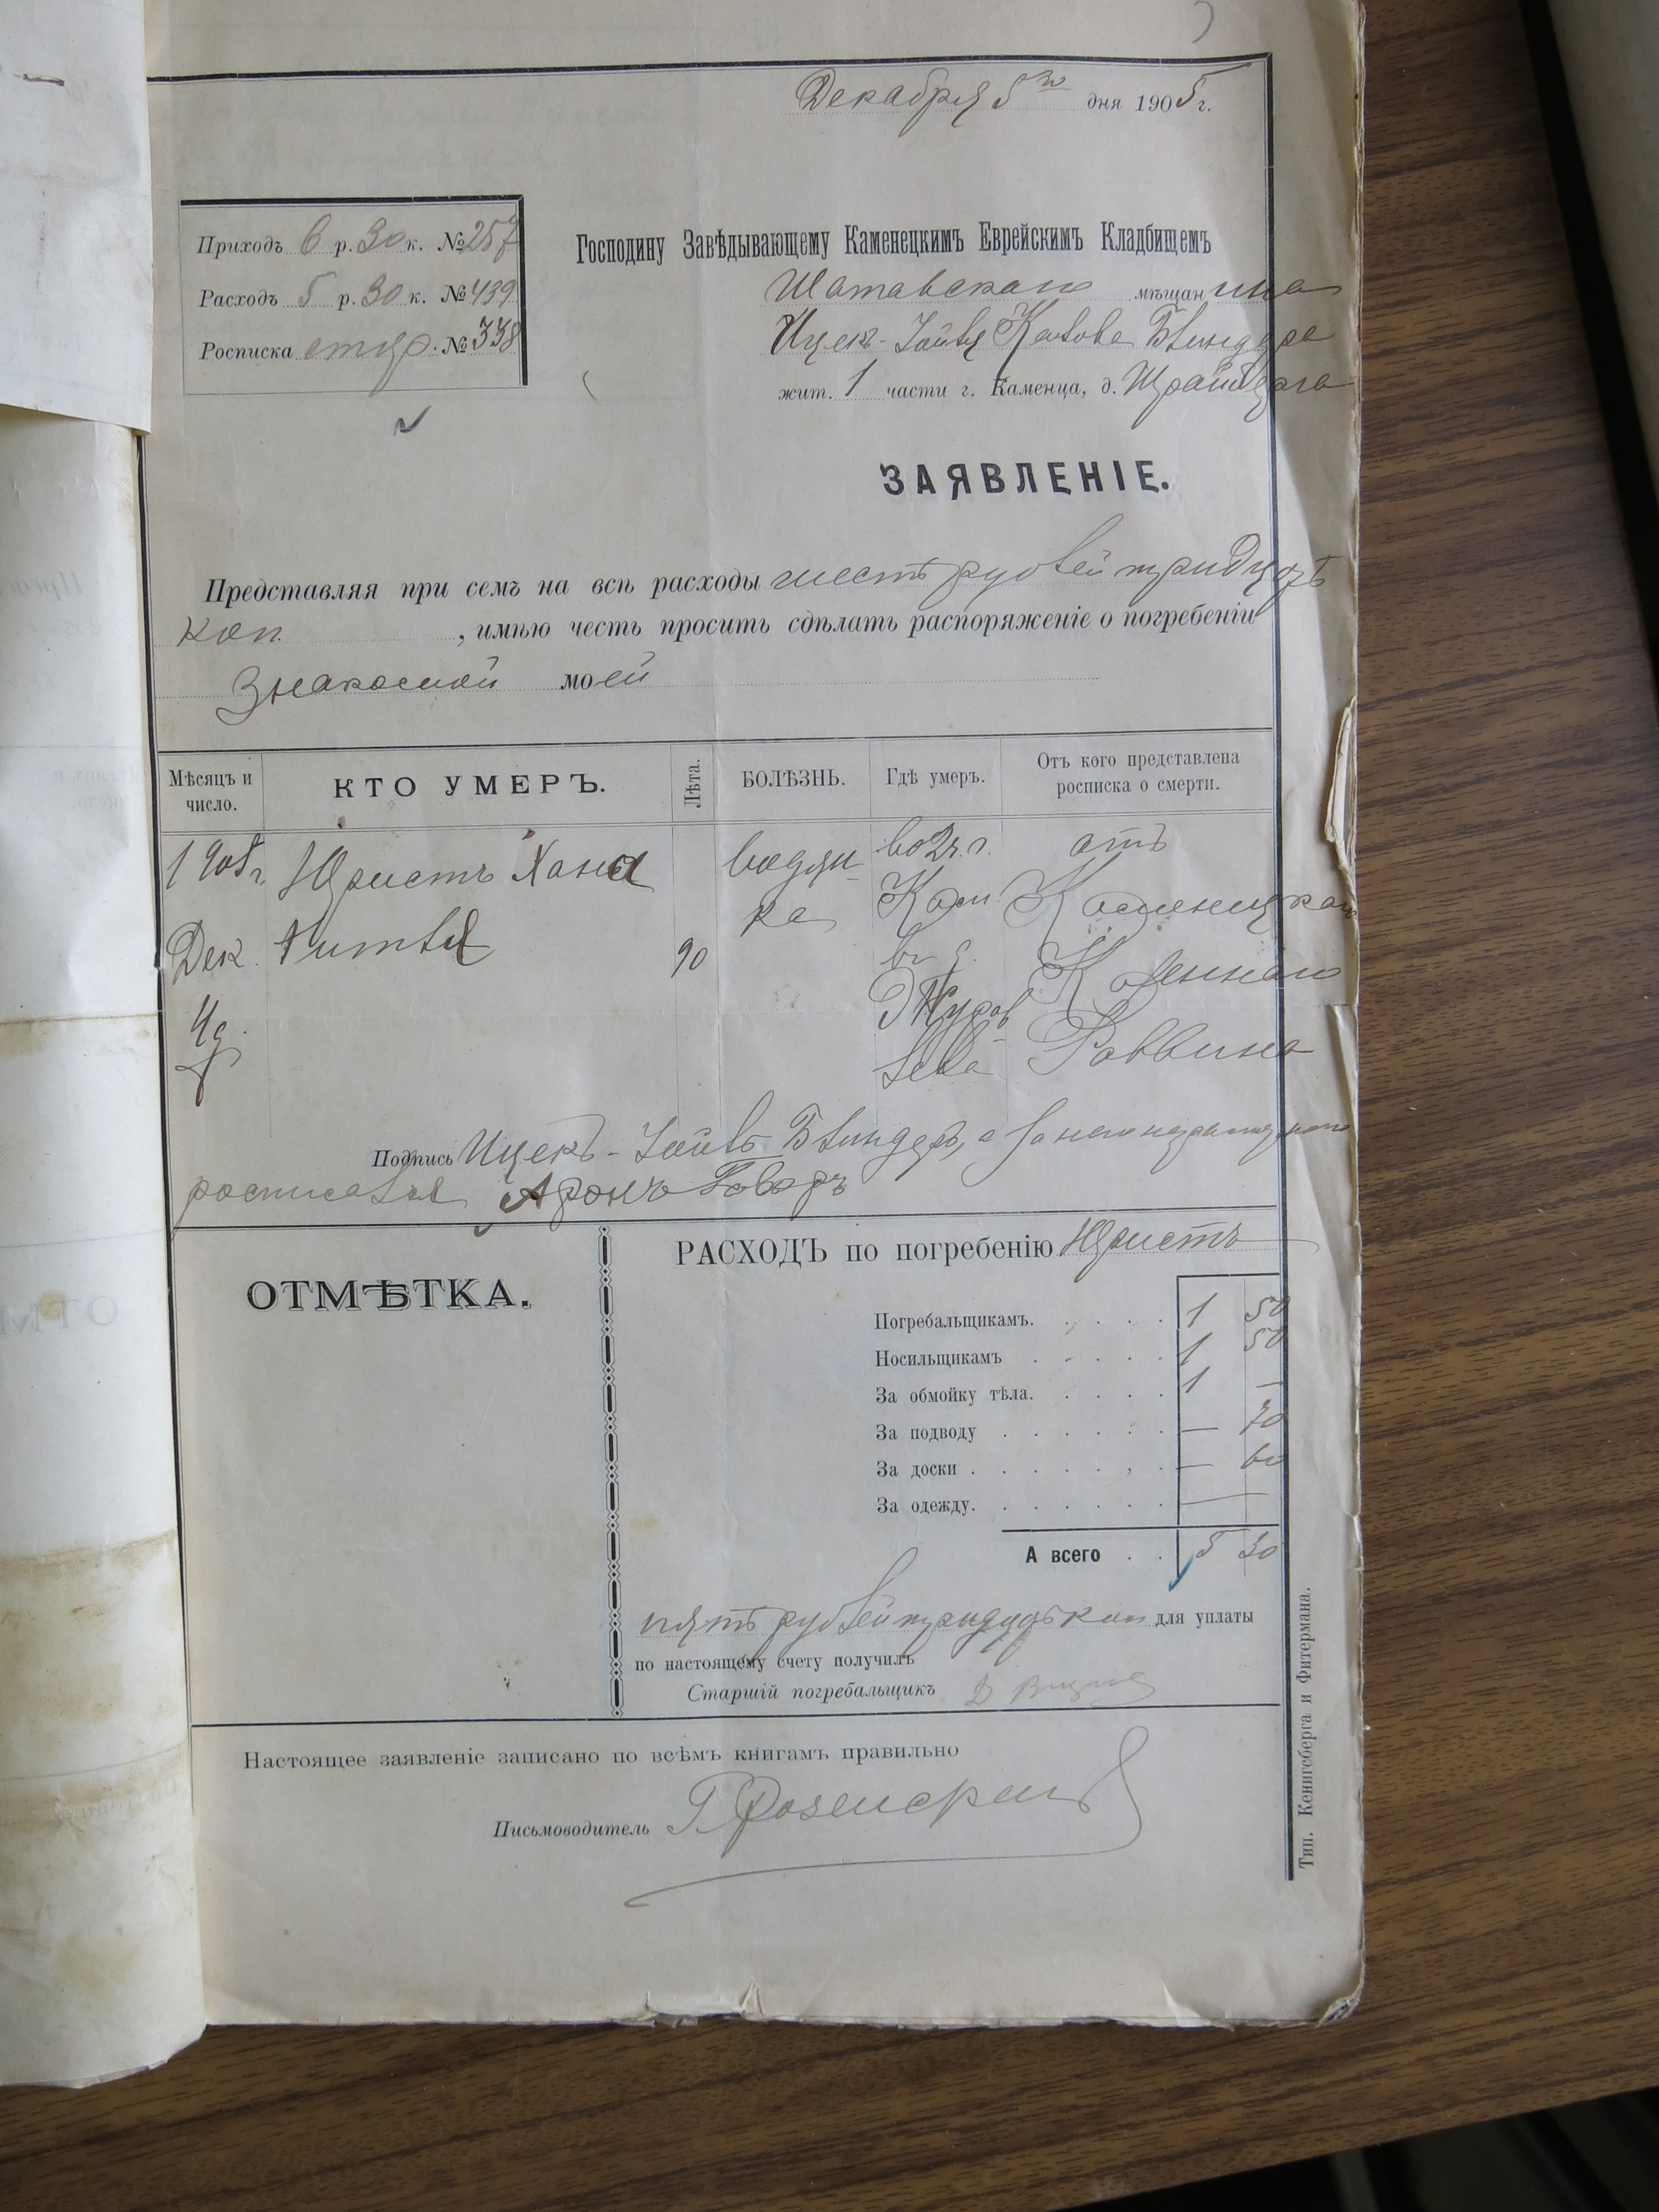 Декабря 5го дня 1905 г.
Приходъ 6 р. 30 к. № 257
Расходъ 5 р. 30 к. № 439
Росписка № 338
Господину Завѣдывающему Каменецкимъ Еврейскимъ Кладбищемъ
Шатавскаго мѣщанина
Ицек-
жит. 1 части г. Каменца, д.
ЗАЯВЛЕНІЕ.
Представляя при семъ на всѣ расходы шесть рублей тридцать
коп. , имѣю честь просить сдѣлать распоряженіе о погребеніи
знакомой моей
Мѣсяцъ и число.
КТО УМЕРЪ.
Лѣта.
БОЛѢЗНЬ.
Гдѣ умеръ.
Отъ кого представлена росписка о смерти.
1905 г. Юристъ Хана водян- во 2 ч. г. отъ
ка Кам. Каменецкаго
Дек. 90 въ д. Казеннаго
4 д. Раввина
Подпись Ицекъ- а за него неграмотнаго
росписался Аронъ
ОТМѢТКА.
РАСХОДЪ по погребенію Юристъ
Погребальщикамъ. 1 50
Носильщикамъ 1 50
За обмойку тѣла. 1 —
За подводу — 70
За доски — 60
За одежду. —
А всего 5 30
пять рублей тридцать коп для уплаты
по настоящему счету получилъ
Старшій погребальщикъ
Настоящее заявленіе записано по всѣмъ книгамъ правильно
Письмоводитель
Тип. Кенигсберга и Фитермана.